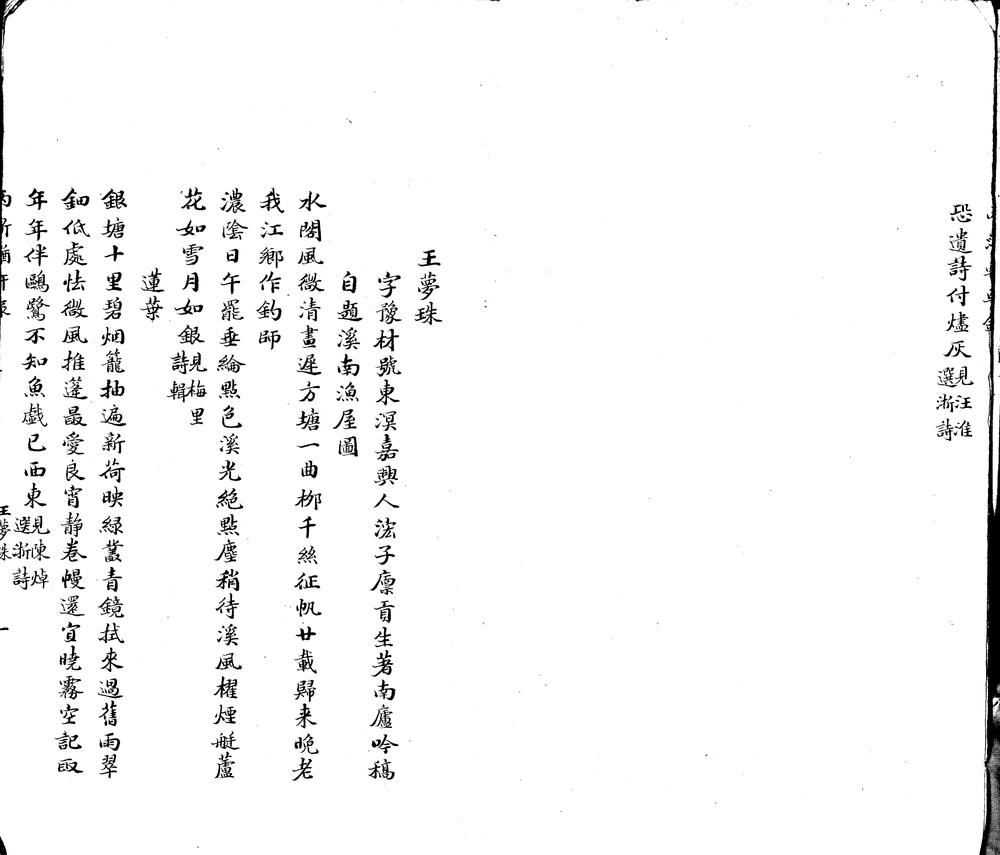 恐遺詩付燼灰見汪淮
選浙詩
王夢珠
字豫材號東溟嘉興人浤子廩貢生著南廬吟稿
自題溪南漁屋圖
水閣風微清晝遲方塘一曲栁千絲征帆廿載歸来晚老
我江鄉作釣師
濃陰日午罷垂綸點色溪光絕點塵稍待溪風櫂煙艇蘆
花如雪月如銀見梅里
詩輯
蓮葉
銀塘十里碧烟籠抽遍新荷映綠叢青鏡拭來過舊雨翠
鈿低處怯微風推蓬最愛良宵静卷幔還宜曉霧空記取
年年伴鷗鷺不知魚戲已西東見陳焯
選浙詩
王夢珠
一